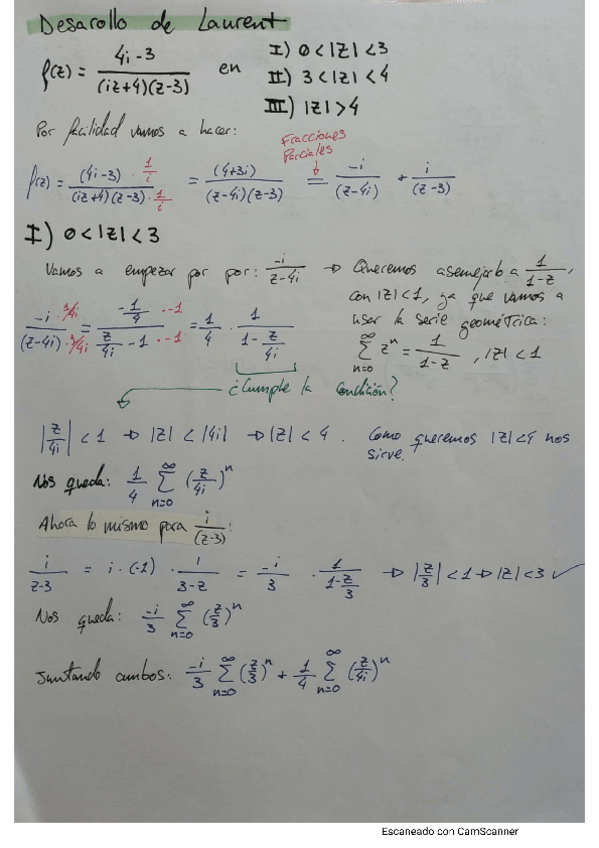 Desarollo de Laurent
f(z) = (4i-3)/((iz+4)(z-3)) en
I) 0<|z|<3
II) 3<|z|<4
III) |z|>4
Por facilidad vamos a hacer:
Fracciones Parciales
f(z) = (4i-3)·1/i / ((iz+4)(z-3)·1/i) = (4+3i)/((z-4i)(z-3)) = -i/(z-4i) + i/(z-3)
I) 0<|z|<3
Vamos a empezar por por: -i/(z-4i) → Queremos asemejarlo a 1/(1-z),
con |z|<1, ya que vamos a
usar la serie geométrica:
∑_{n=0}^{∞} z^n = 1/(1-z), |z|<1
-i·1/4i / ((z-4i)·1/4i) = -1/4·-1 / (z/4i - 1·-1) = 1/4 · 1/(1-z/4i)
¿Cumple la Condición?
|z/4i| < 1 → |z| < |4i| → |z| < 4. Como queremos |z|<4 nos
sirve.
Nos queda: 1/4 ∑_{n=0}^{∞} (z/4i)^n
Ahora lo mismo para i/(z-3):
i/(z-3) = i·(-1)·1/(3-z) = -i/3 · 1/(1-z/3) → |z/3|<1 → |z|<3 ✓
Nos queda: -i/3 ∑_{n=0}^{∞} (z/3)^n
Juntando ambos: -i/3 ∑_{n=0}^{∞} (z/3)^n + 1/4 ∑_{n=0}^{∞} (z/4i)^n
Escaneado con CamScanner